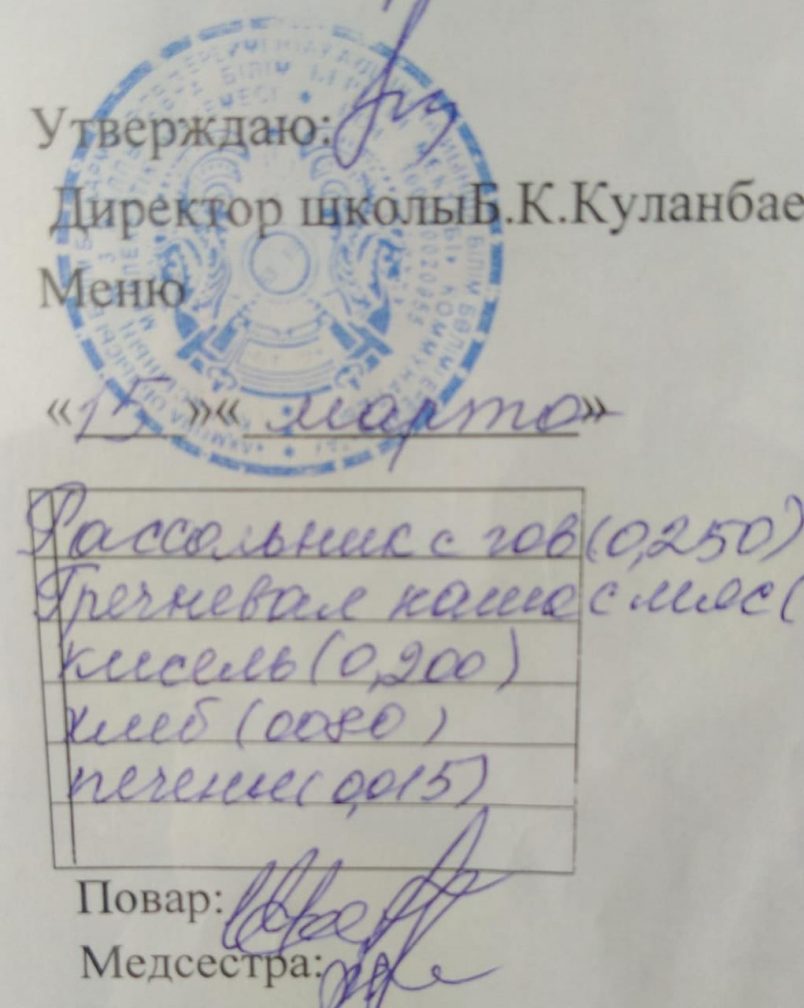 Утверждаю:
Директор школыБ.К.Куланбае
Меню
«15»«марта»
Рассольник с гов(0,250)
Гречневая каша с мяс(
кисель(0,200)
хлеб (0080)
печение(0,015)
Повар:
Медсестра: